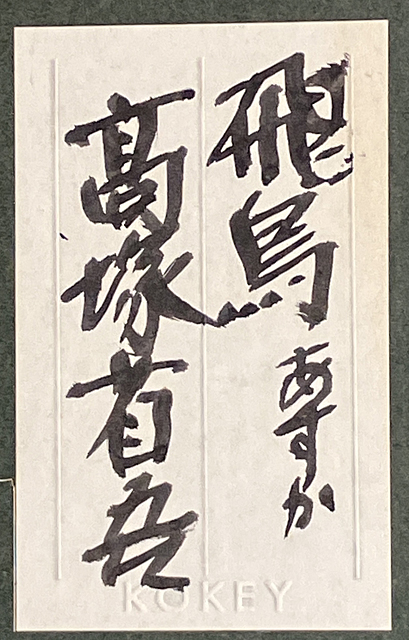 飛鳥 あすか
髙塚省吾
KOKEY